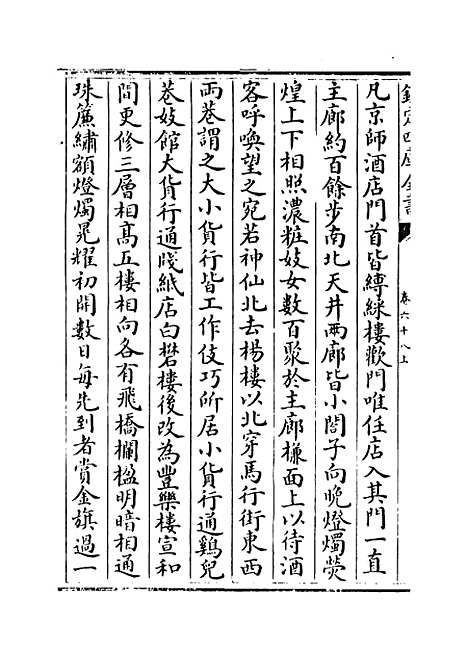 欽定四庫全書
卷六十八上
凡京師酒店門首皆縛綵樓歡門唯任店入其門一直
主廊約百餘步南北天井兩廊皆小閤子向晚燈燭熒
煌上下相照濃粧妓女數百聚於主廊槏面上以待酒
客呼喚望之宛若神仙北去楊樓以北穿馬行街東西
兩巷謂之大小貨行皆工作伎巧所居小貨行通鷄兒
巷妓館大貨行通牋紙店白礬樓後改為豐樂樓宣和
間更修三層相髙五樓相向各有飛橋欄楹明暗相通
珠簾繡額燈燭晃耀初開數日每先到者賞金旗過一